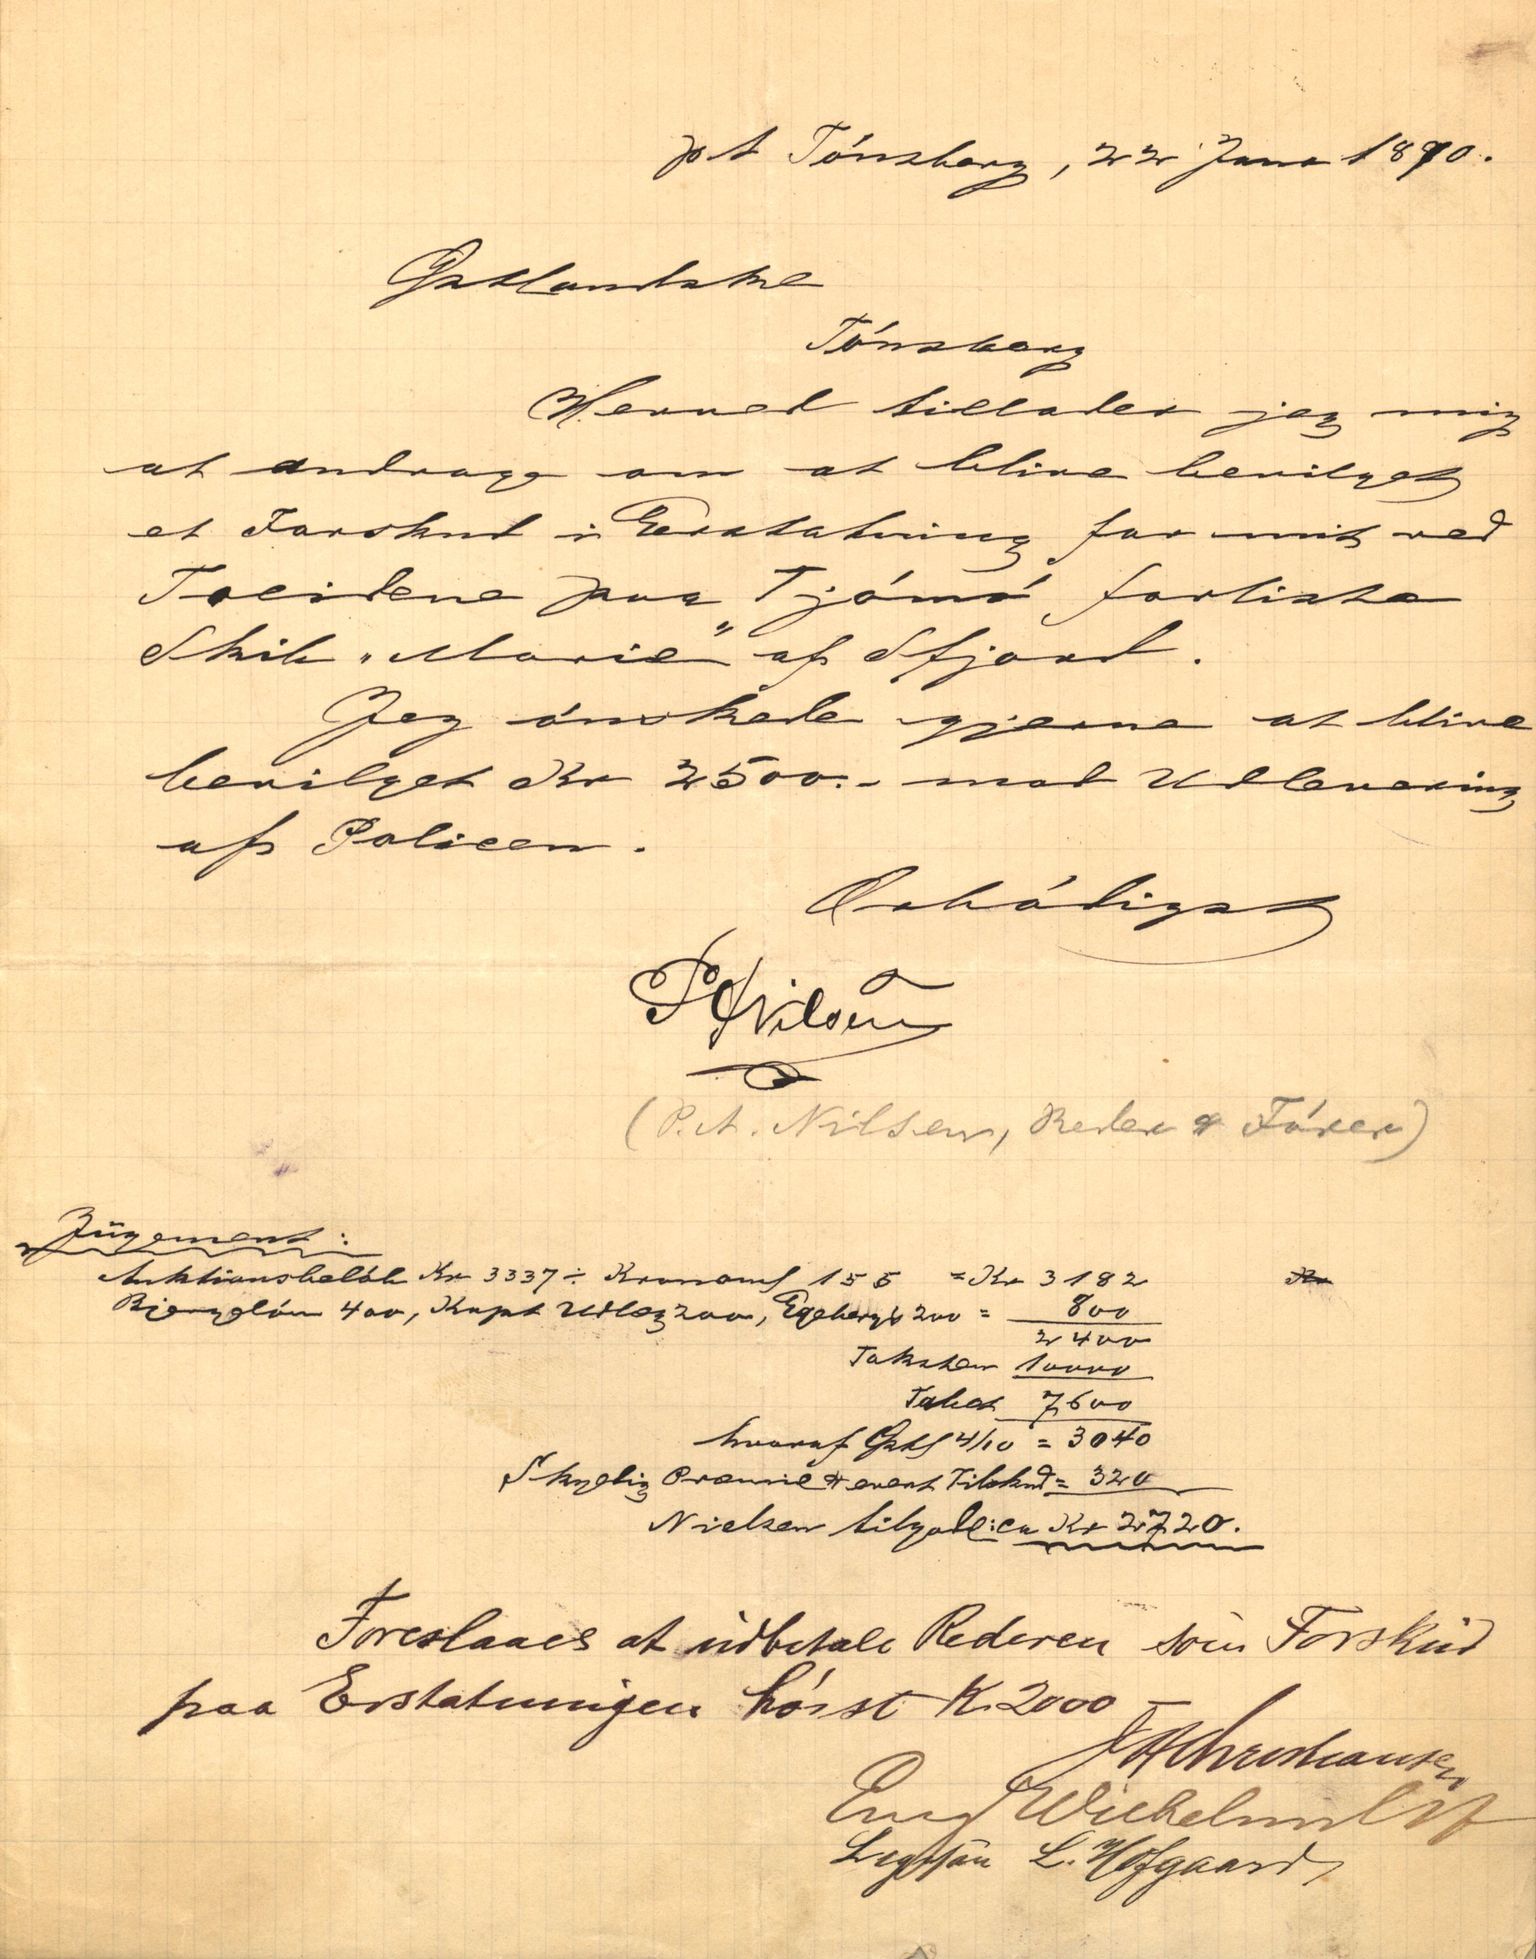 pt Tönsberg, 22 Juni 1890.
Östlandske
Tönsberg
Herved tillader jeg mig
at andrage om at blive bevilget
et Forskud i Erstatning for mit ved
Treidene paa Tjömö forliste
Skib "Marie" af Sfjord.
Jeg önskede gjerne at blive
bevilget Kr 2500.- mod Udlevering
af Policen.
Ærbödigst
P A Nilsen
(P.A. Nilsen, Reder & Förer)
Jügement:
Auktionsbelöb Kr 3337 ÷ 155 = Kr 3182
Bjergelön 400, Kapt Udlæg 200, Egebergs 200 = 800
2400
Taksten 10000
Tabet 7600
hvoraf Östl 4/10 = 3040
Skyldig Præmie & event Tilskud = 320
Nielsen tilgode ca Kr 2720.
Foreslaaes at udbetale Rederen som Forskud
paa Erstatningen höist K. 2000 –
Christiansen
L. Hofgaard